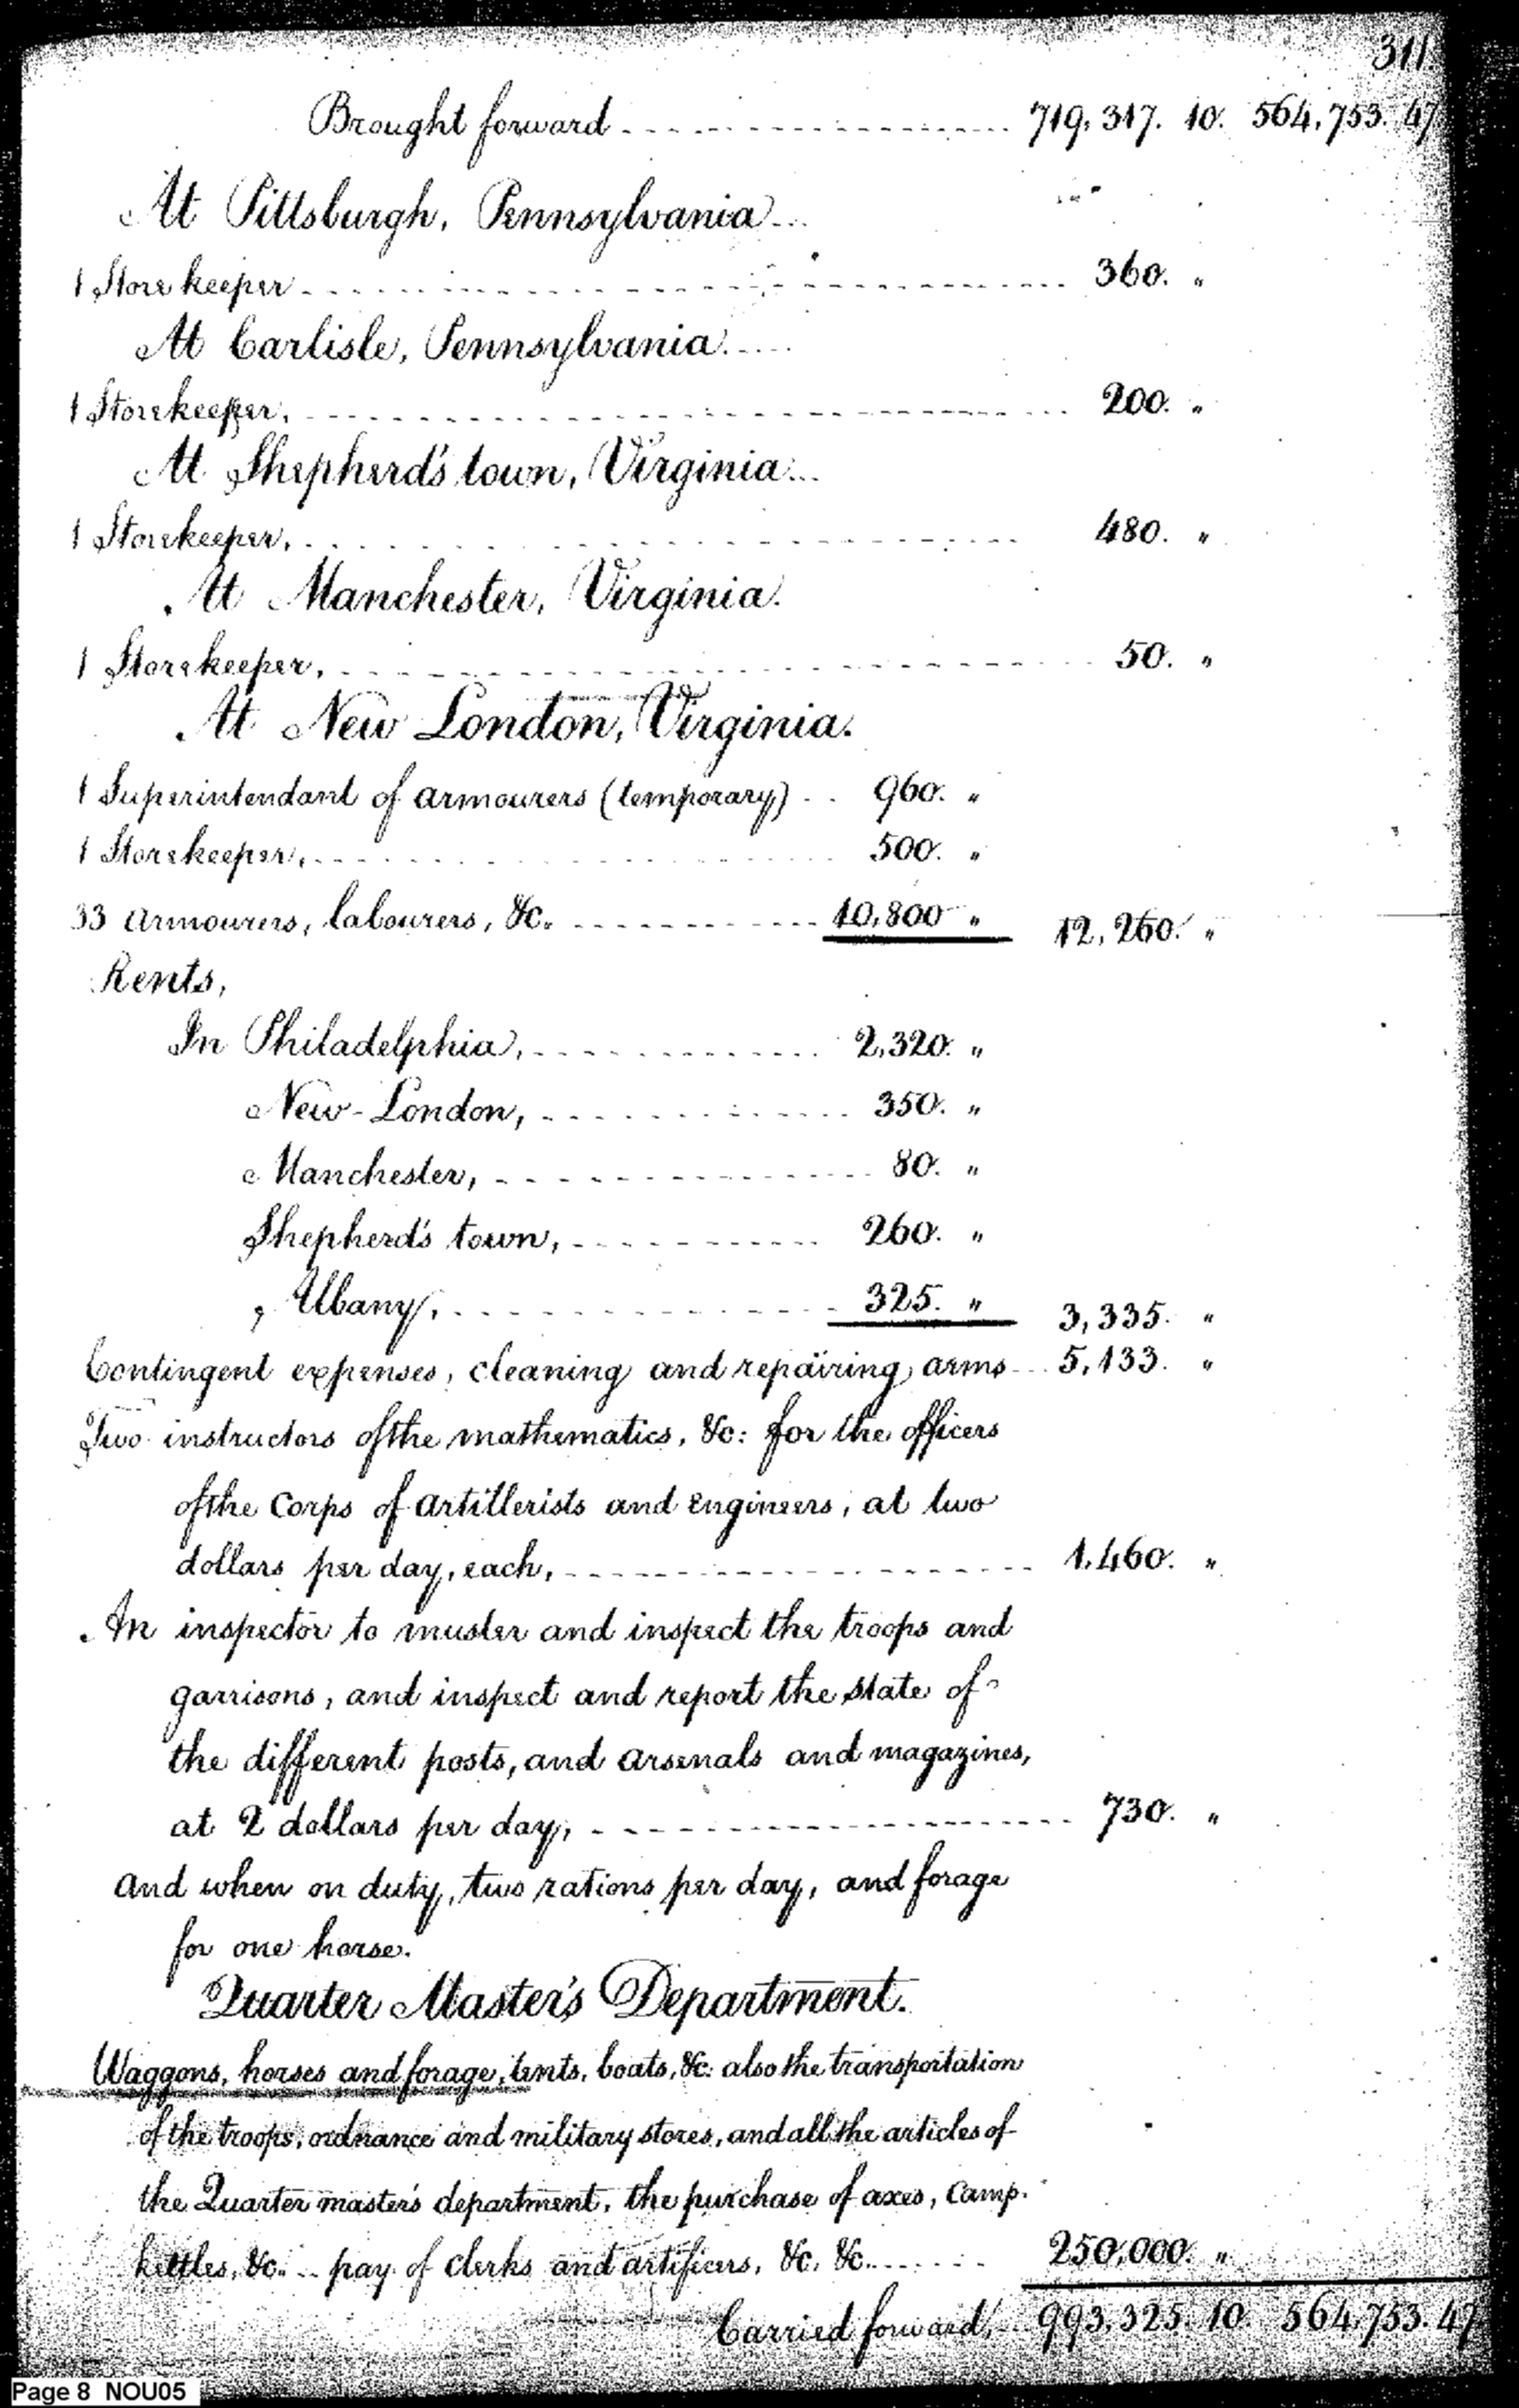 311.
Brought forward 719,317. 10. 564,753. 47
At Pittsburgh, Pennsylvania
1 Storekeeper 360. "
At Carlisle, Pennsylvania.
1 Storekeeper, 200. "
At Shepherd's town, Virginia.
1 Storekeeper, 480. "
At Manchester, Virginia.
1 Storekeeper, 50. "
At New London, Virginia.
1 Superintendant of armourers (temporary) 960. "
1 Storekeeper, 500. "
33 armourers, labourers, &c. 10,800 " 12,260. "
Rents,
In Philadelphia, 2,320. "
New-London, 350. "
Manchester, 80. "
Shepherd's town, 260. "
Albany, 325. " 3,335. "
Contingent expenses, cleaning and repairing arms 5,133. "
Two instructors of the mathematics, &c: for the officers
of the Corps of artillerists and engineers, at two
dollars per day, each, 1,460. "
An inspector to muster and inspect the troops and
garrisons, and inspect and report the state of
the different posts, and arsenals and magazines,
at 2 dollars per day, 730. "
and when on duty, two rations per day, and forage
for one horse.
Quarter Master's Department.
Waggons, horses and forage, tents, boats, &c: also the transportation
of the troops, ordnance and military stores, and all the articles of
the Quarter master's department, the purchase of axes, Camp-
kettles, &c. pay of clerks and artificers, &c. &c. 250,000. "
Carried forward, 993,325. 10. 564,753. 47
Page 8 NOU05